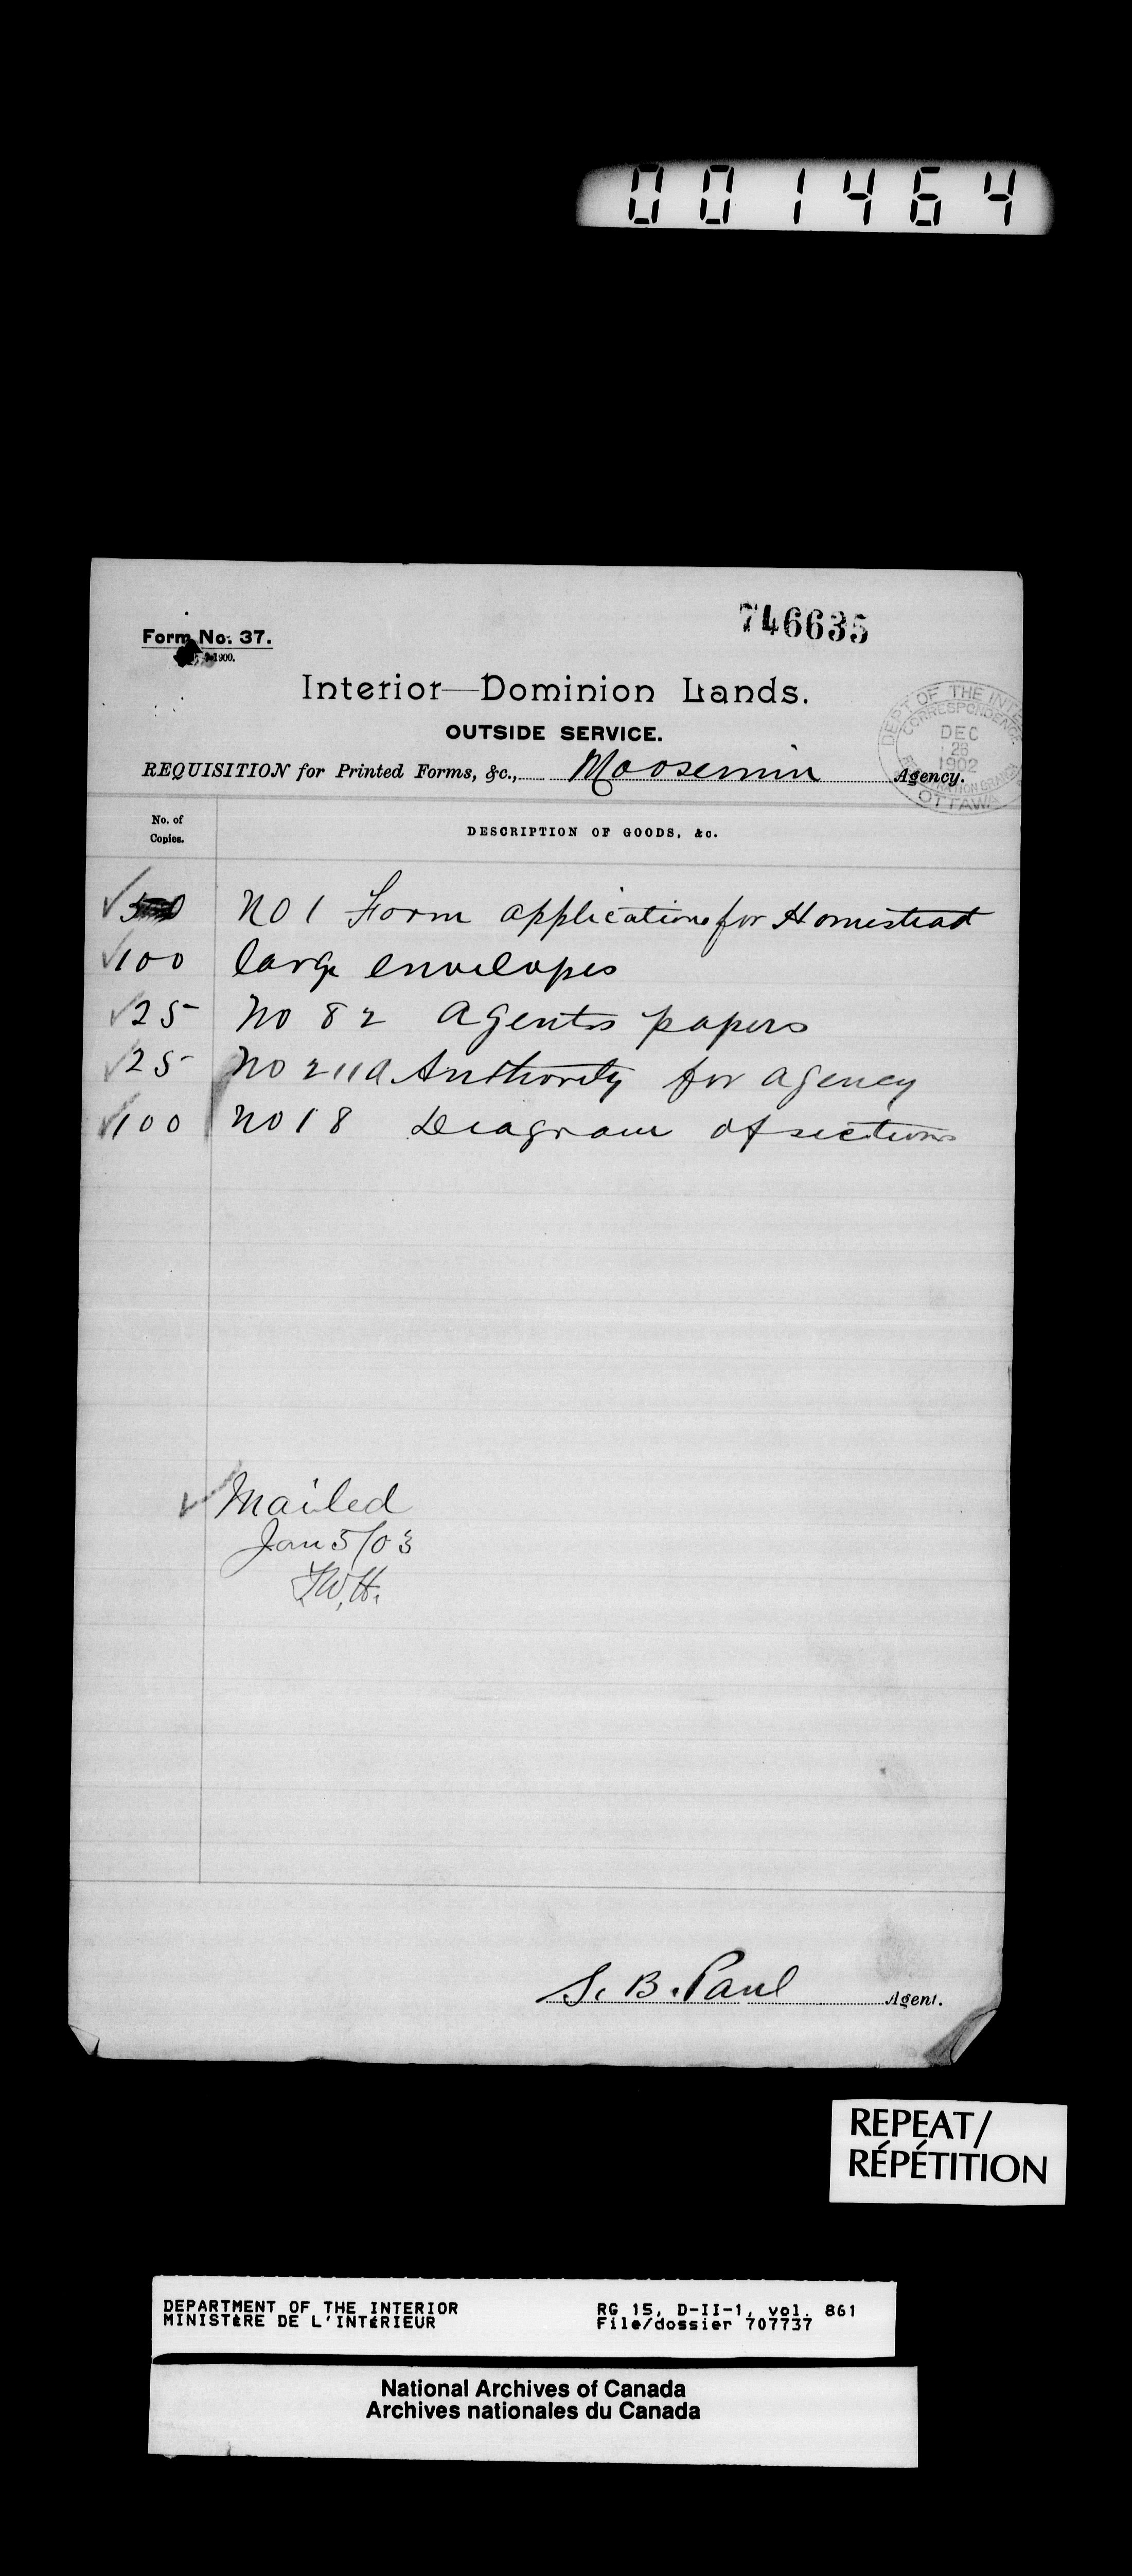 001464
746635
Form No. 37.
1900.
Interior—Dominion Lands.
OUTSIDE SERVICE.
REQUISITION for Printed Forms, &c., Moosemin Agency.
DEPT OF THE INTE
CORRESPONDENCE
DEC
26
1902
REGISTRATION BRANCH
OTTAWA
No. of Copies. DESCRIPTION OF GOODS, &c.
No 1 Form applications for Homestead
100 large envelopes
25 No 82 Agents papers
25 No 211a Authority for agency
100 No 18 Deagram of sections
Mailed
Jan 5/03
S. B. Paul Agent.
REPEAT/
RÉPÉTITION
DEPARTMENT OF THE INTERIOR RG 15, D-II-1, vol. 861
MINISTÈRE DE L'INTÉRIEUR File/dossier 707737
National Archives of Canada
Archives nationales du Canada